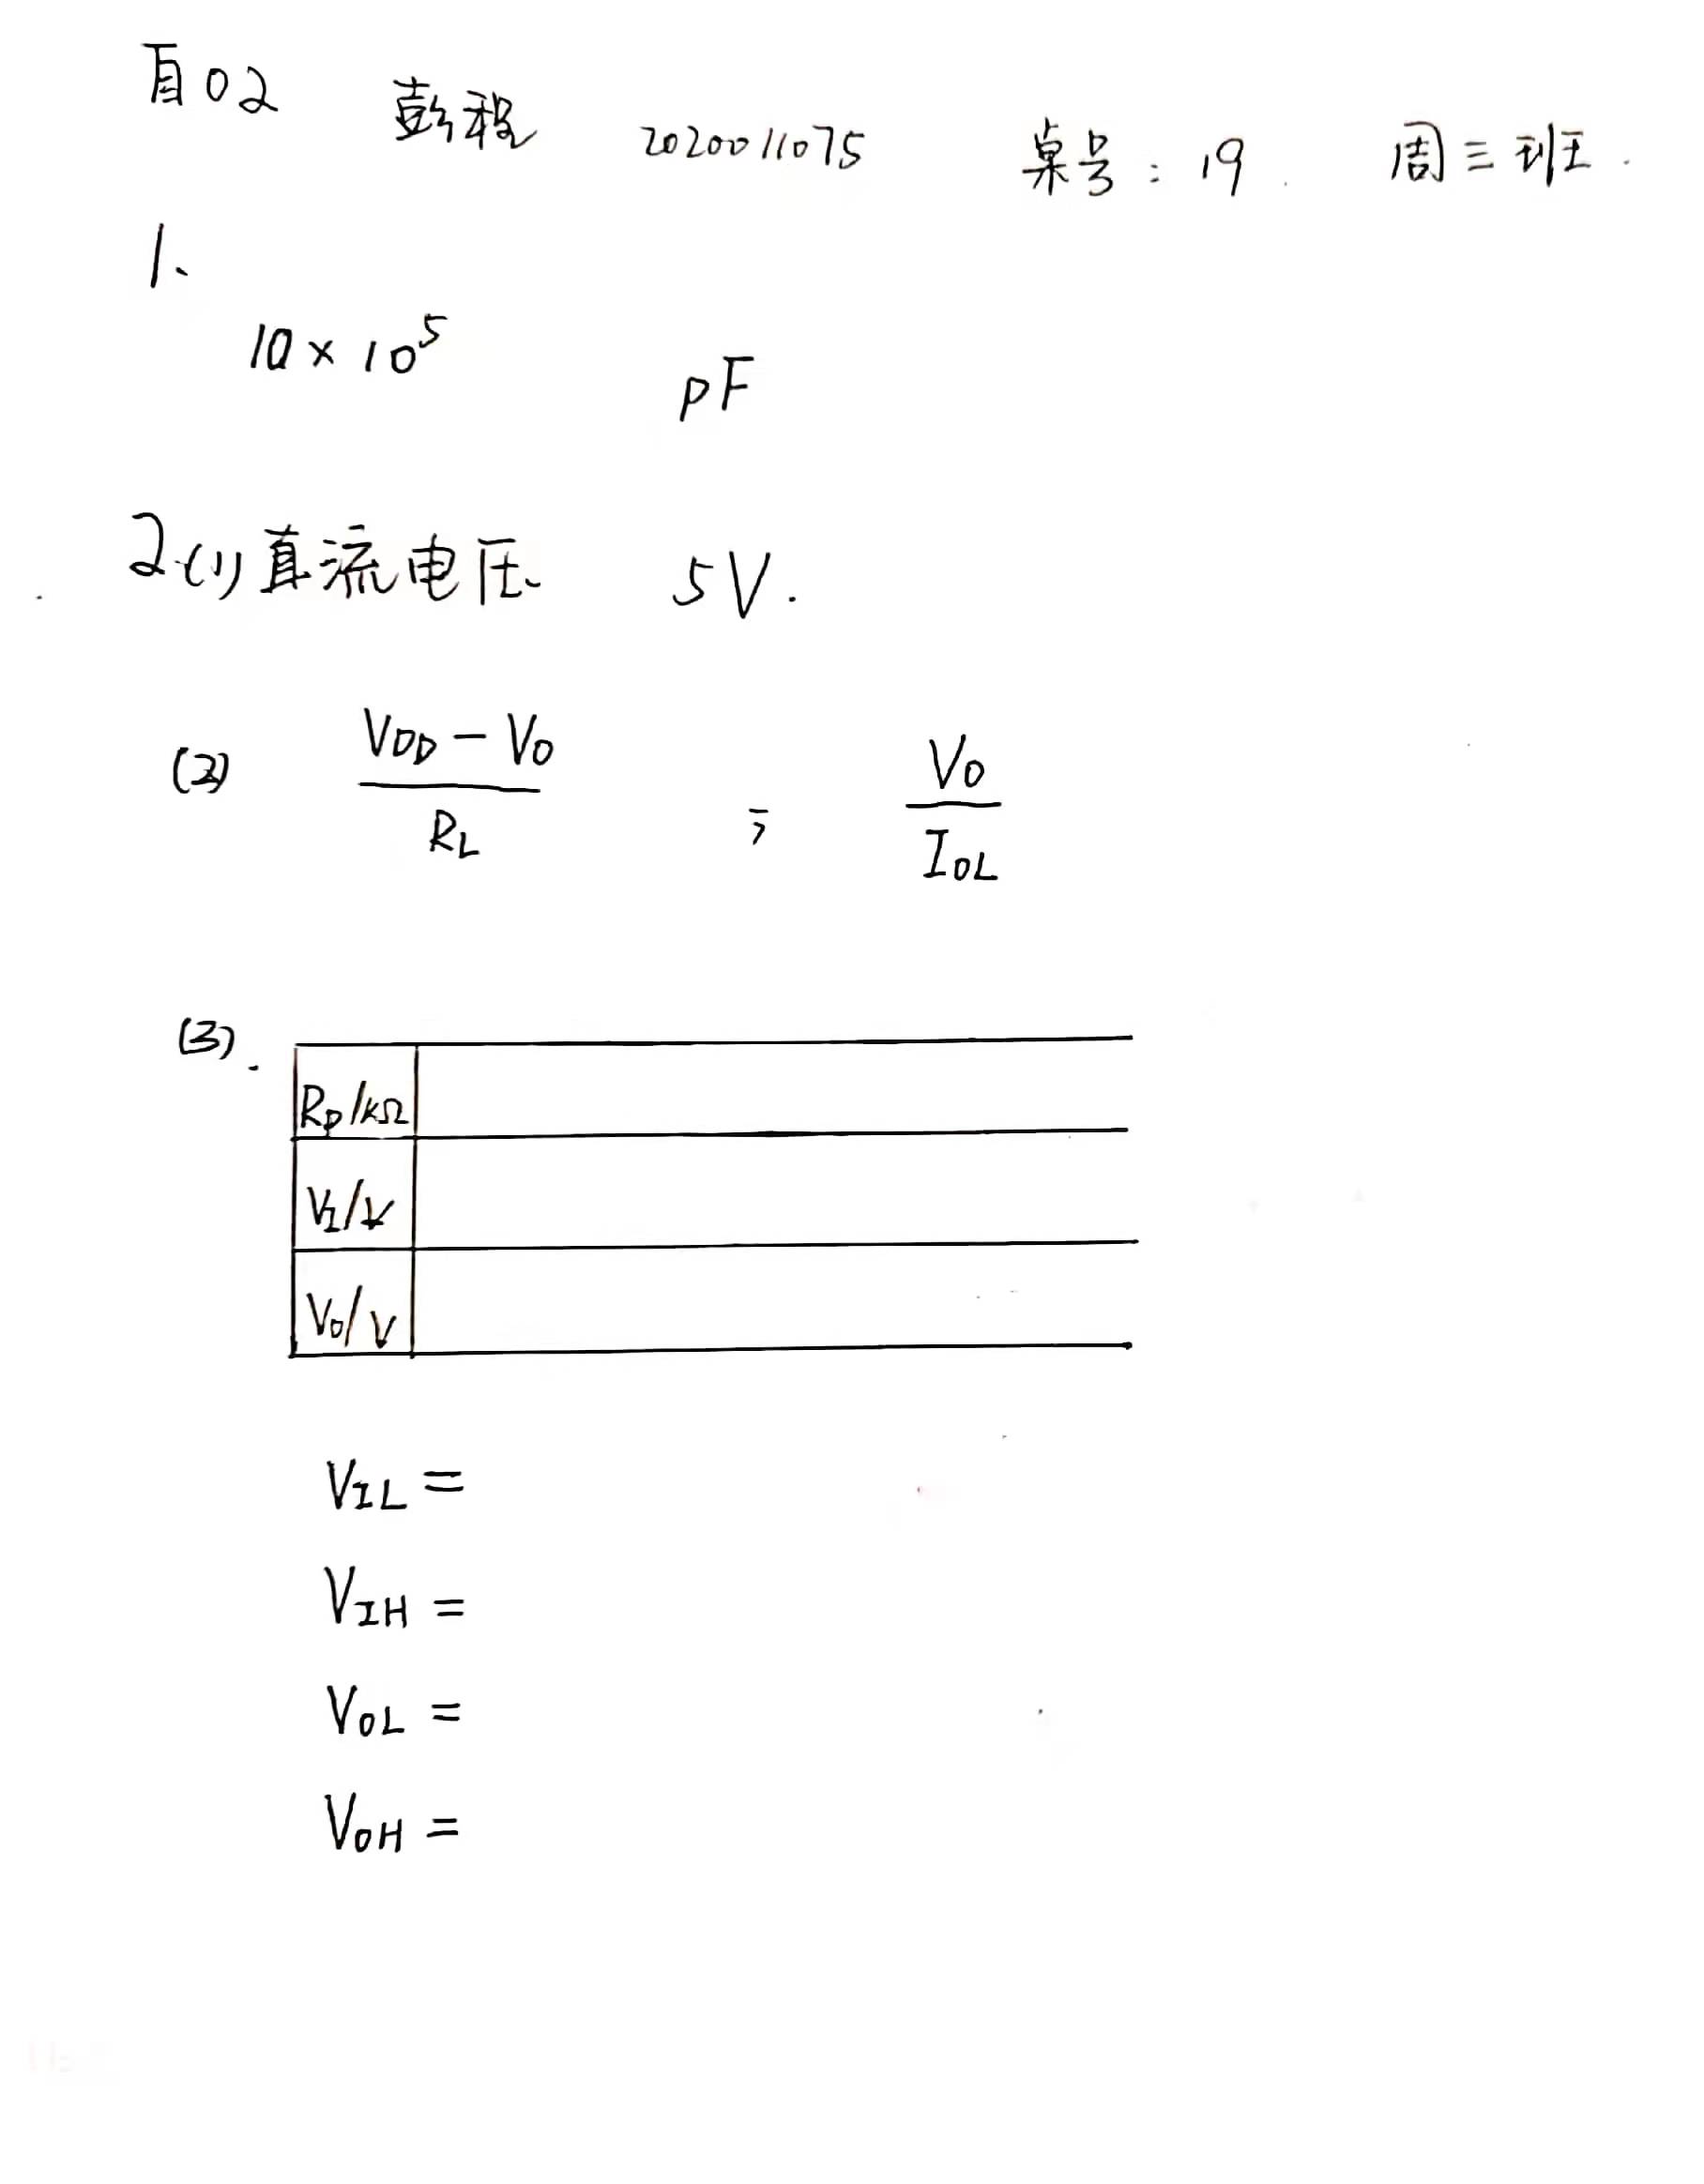 自02 彭程 2020011075 桌号：19. 周三班.
1、
10×10⁵ pF
2.(1)直流电压 5V.
(2) (V_DD − V_O)/R_L ; V_O/I_OL
(3).
R_P/kΩ
V_I/V
V_O/V
V_IL =
V_IH =
V_OL =
V_OH =